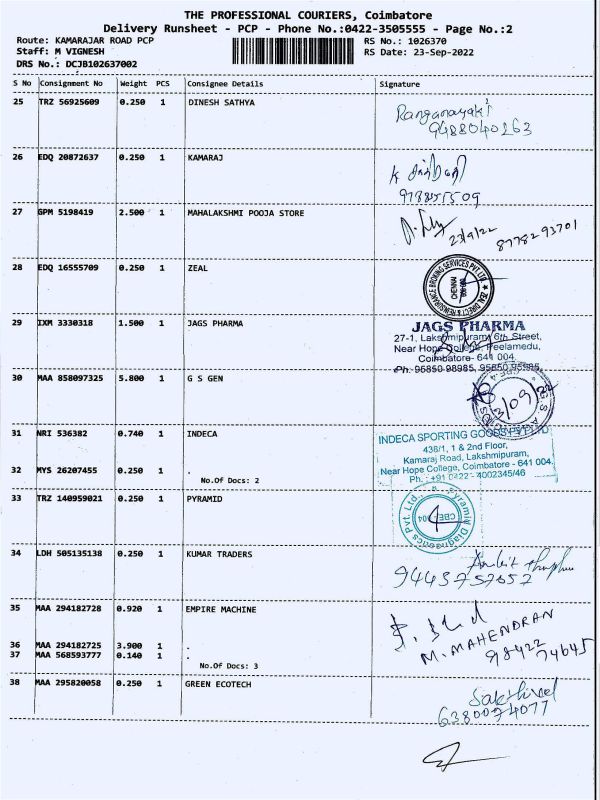 THE PROFESSIONAL COURIERS, Coimbatore
Delivery Runsheet - PCP - Phone No.:0422-3505555 - Page No.:2
Route: KAMARAJAR ROAD PCP
RS No.: 1026370
Staff: M VIGNESH
RS Date: 23-Sep-2022
DRS No.: DCJB102637002
S No Consignment No Weight PCS Consignee Details Signature
25 TRZ 56925609 0.250 1 DINESH SATHYA
Ranganayaki
9488040263
26 EDQ 20872637 0.250 1 KAMARAJ
27 GPM 5198419 2.500 1 MAHALAKSHMI POOJA STORE
23/9/22 8778293701
28 EDQ 16555709 0.250 1 ZEAL
ZEAL DIRECT & REINSURANCE BROKING SERVICES PVT LTD
CHENNAI
29 IXM 3330318 1.500 1 JAGS PHARMA
JAGS PHARMA
27-1, Lakshmipuram, 6th Street,
Near Hope College, Peelamedu,
Coimbatore- 641 004.
Ph: 95850 98985, 95850 95985
30 MAA 858097325 5.800 1 G S GEN
31 NRI 536382 0.740 1 INDECA
INDECA SPORTING GOODS PVT LTD
436/1, 1 & 2nd Floor,
Kamaraj Road, Lakshmipuram,
Near Hope College, Coimbatore - 641 004.
Ph. : +91 0422 - 4002345/46
32 MYS 26207455 0.250 1 .
No.Of Docs: 2
33 TRZ 140959021 0.250 1 PYRAMID
Pyramid Diagnostics Pvt. Ltd.
34 LDH 505135138 0.250 1 KUMAR TRADERS
9443757657
35 MAA 294182728 0.920 1 EMPIRE MACHINE
M. MAHENDRAN
98422 74645
36 MAA 294182725 3.900 1 .
37 MAA 568593777 0.140 1 .
No.Of Docs: 3
38 MAA 295820058 0.250 1 GREEN ECOTECH
Sakthivel
6380074077